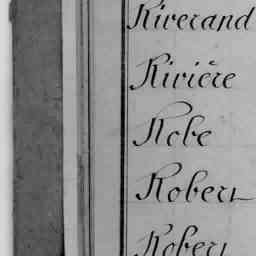 Riverand
Rivière
Robe
Robert
Robert